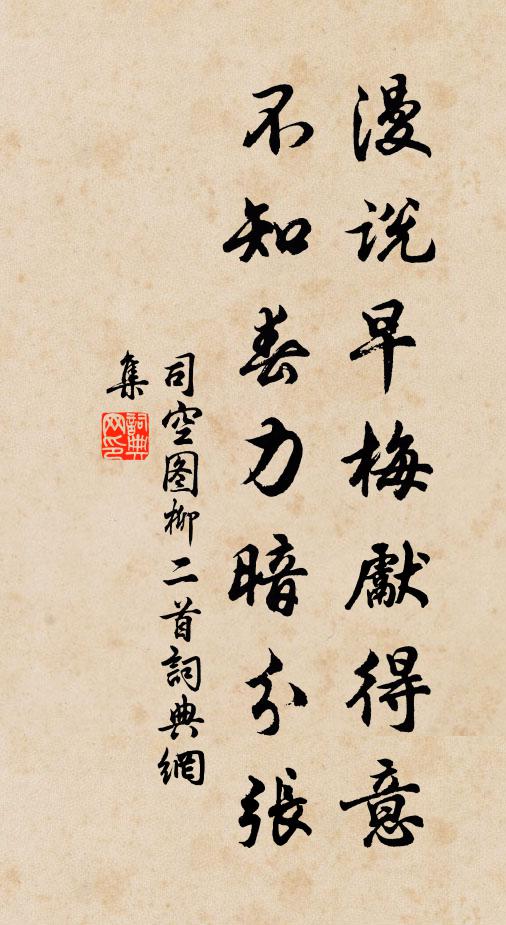 漫説早梅獻得意
不知春力暗分張
司空图柳二首詞典網
集
詞典网印